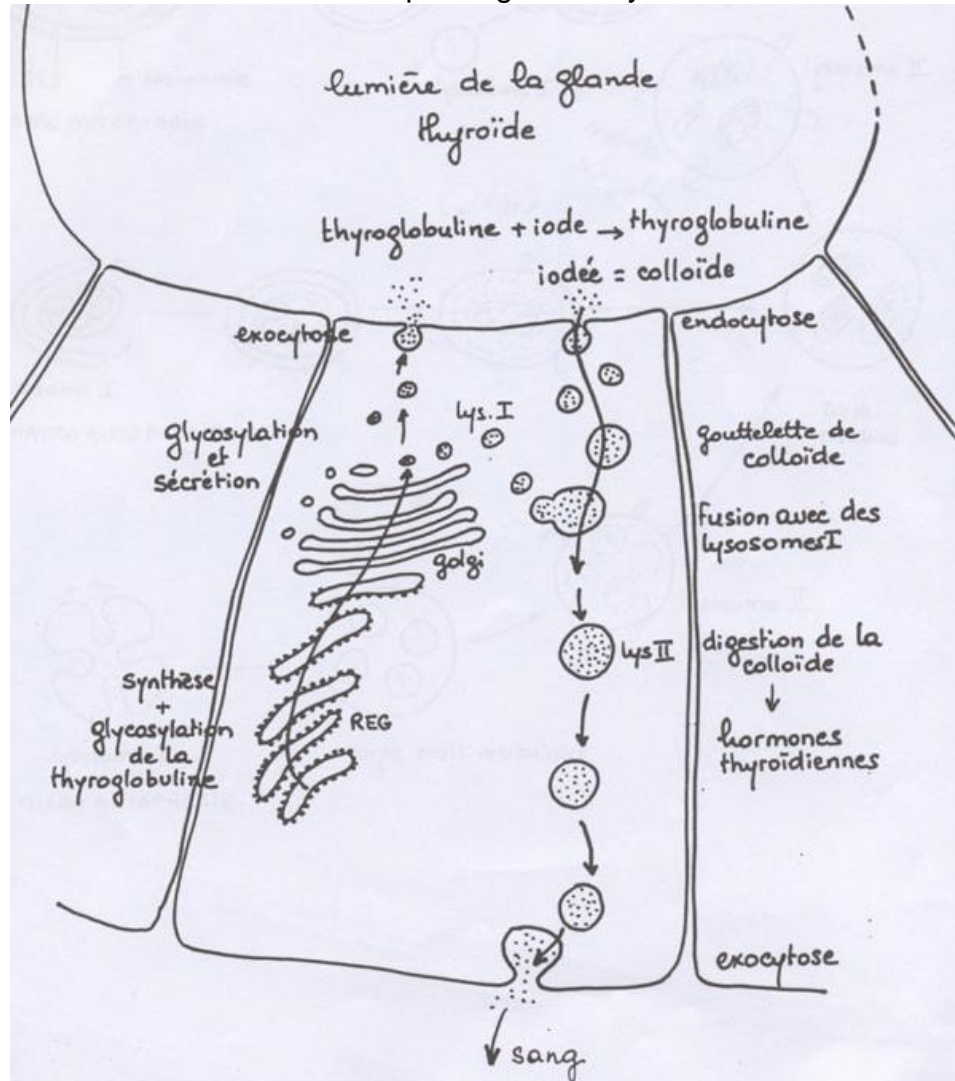 lumière de la glande
thyroïde
thyroglobuline + iode → thyroglobuline
iodée = colloïde
exocytose
endocytose
lys. I
glycosylation
et
sécrétion
gouttelette de
colloïde
fusion avec des
lysosomes I
golgi
lys II
digestion de la
colloïde
↓
hormones
thyroïdiennes
synthèse
+
glycosylation
de la
thyroglobuline
REG
exocytose
sang